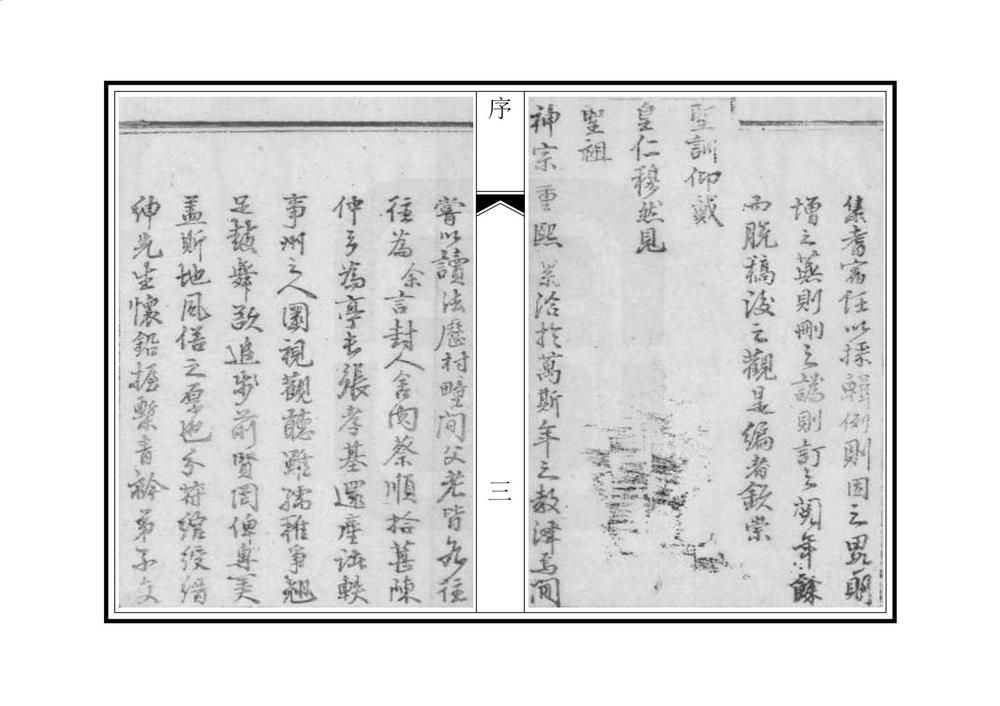 集耆宿任以採輯例則因之畧則
增之蕪則刪之譌則訂之閱年餘
而脫稿後之觀是編者欽崇
聖訓仰戴
皇仁穆然見
聖祖
神宗重熙累洽於萬斯年之教澤焉間
序
三
嘗以讀法歷村疃間父老皆各往
往為余言封人舍肉蔡順拾葚陳
仲弓為亭長張孝基還產諸軼
事州之人圜視觀聽雖孺稚爭翹
足鼓舞欲追步前賢罔俾專美
蓋斯地風俗之厚也分符綰綬縉
紳先生懷鉛握槧青衿弟子文